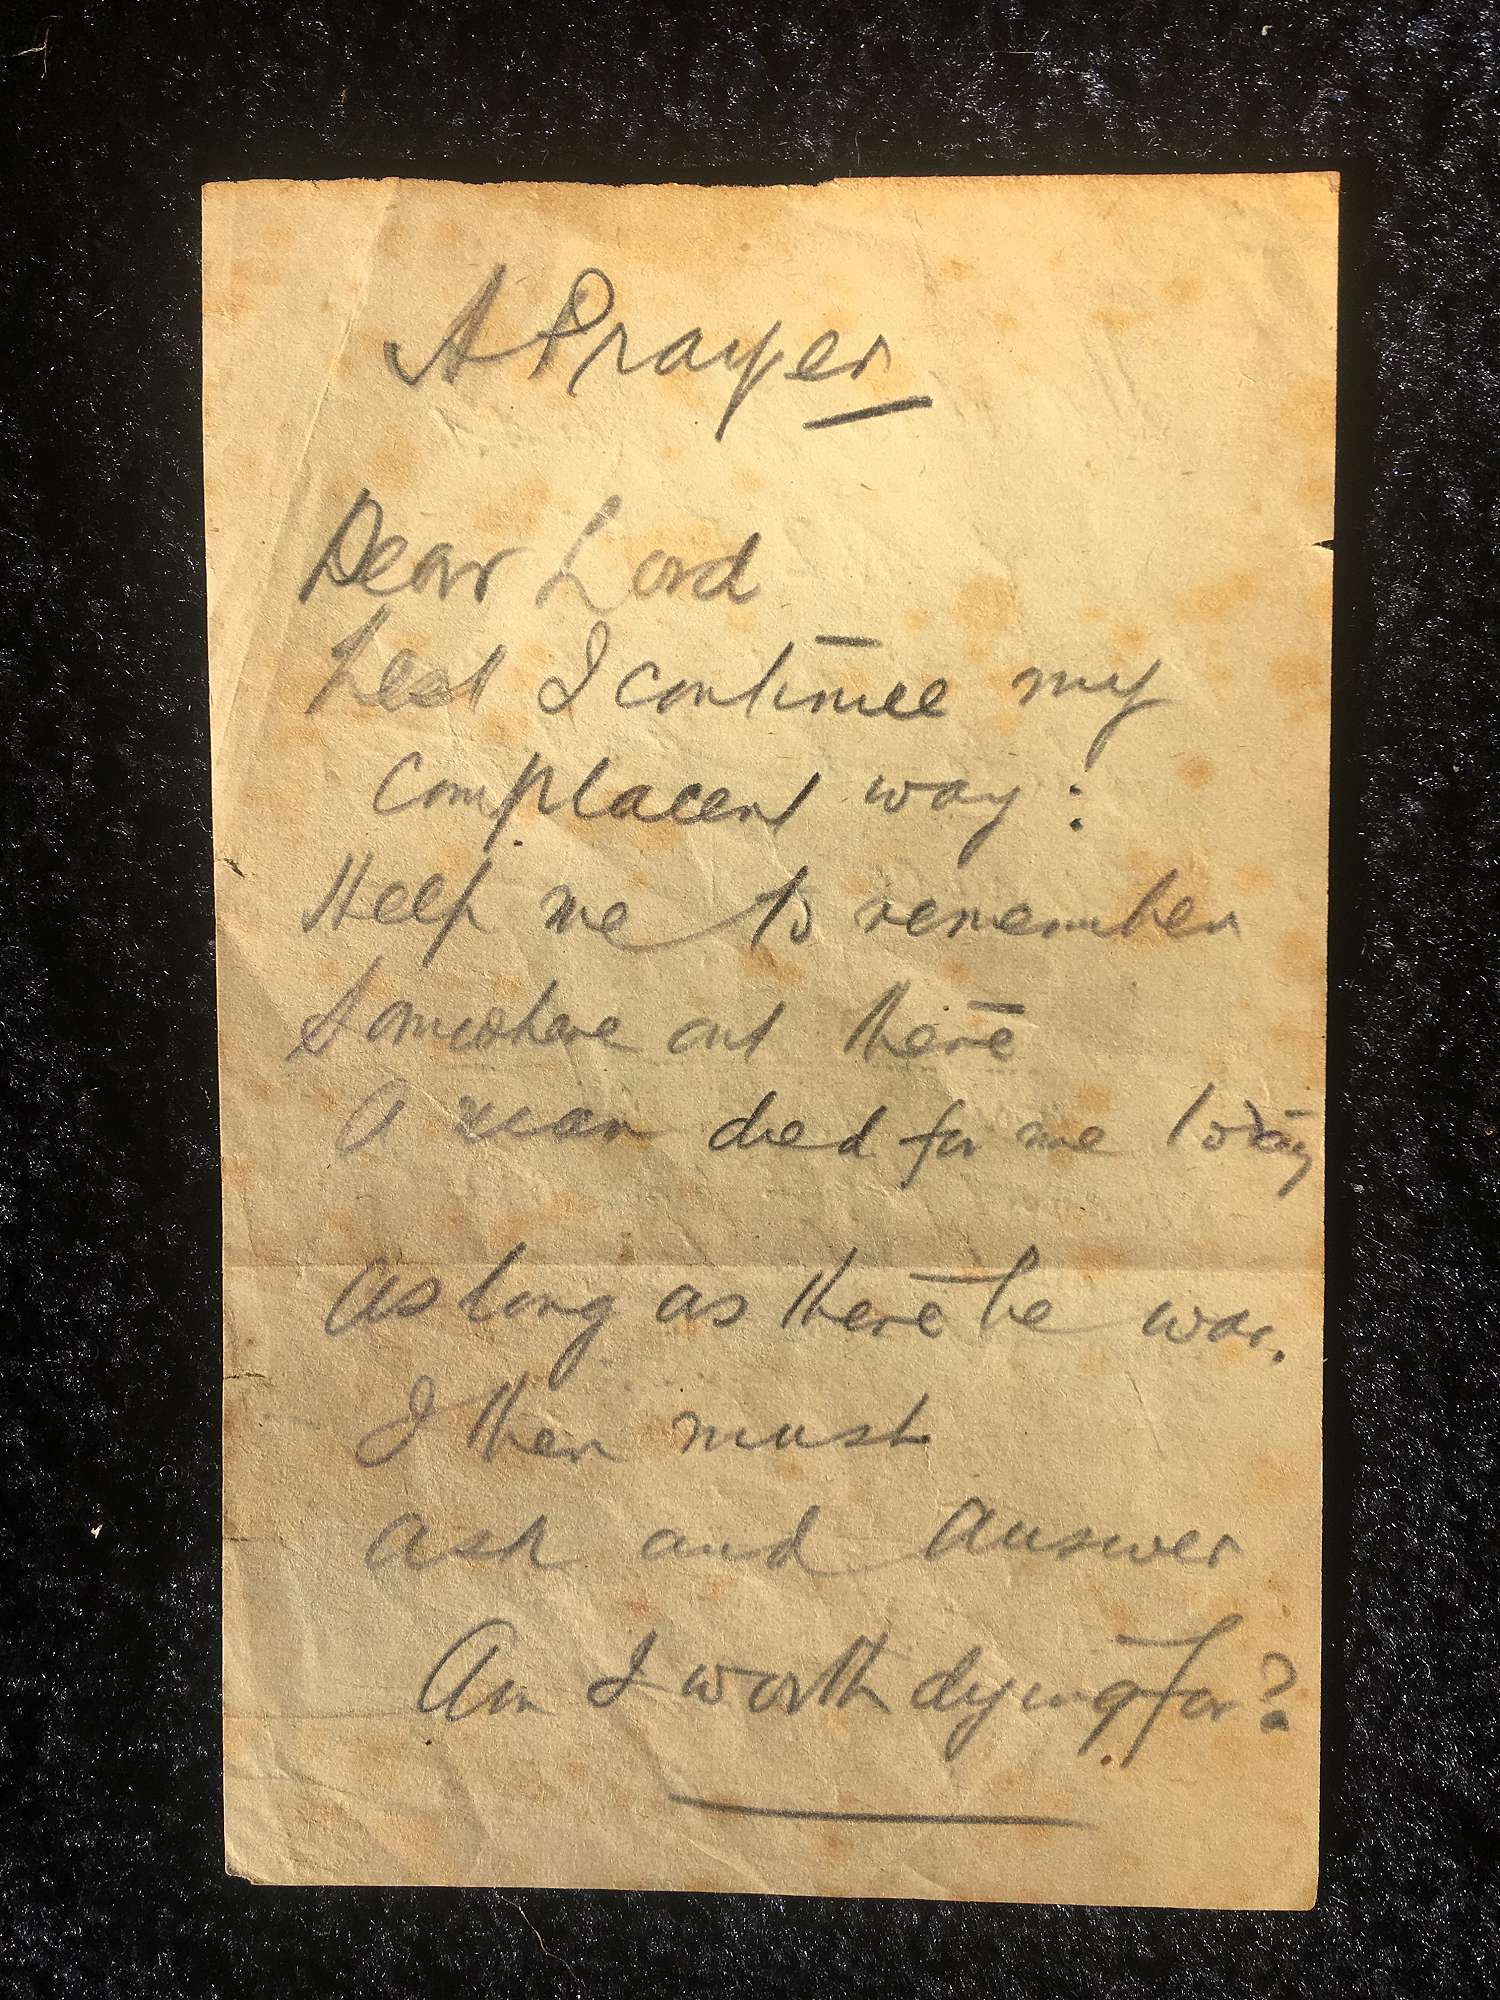 A Prayer
Dear Lord
Lest I continue my
complacent way:
Help me to remember
Somewhere out there
A man died for me today
As long as there be war.
I then must
ask and answer
Am I worth dying for?